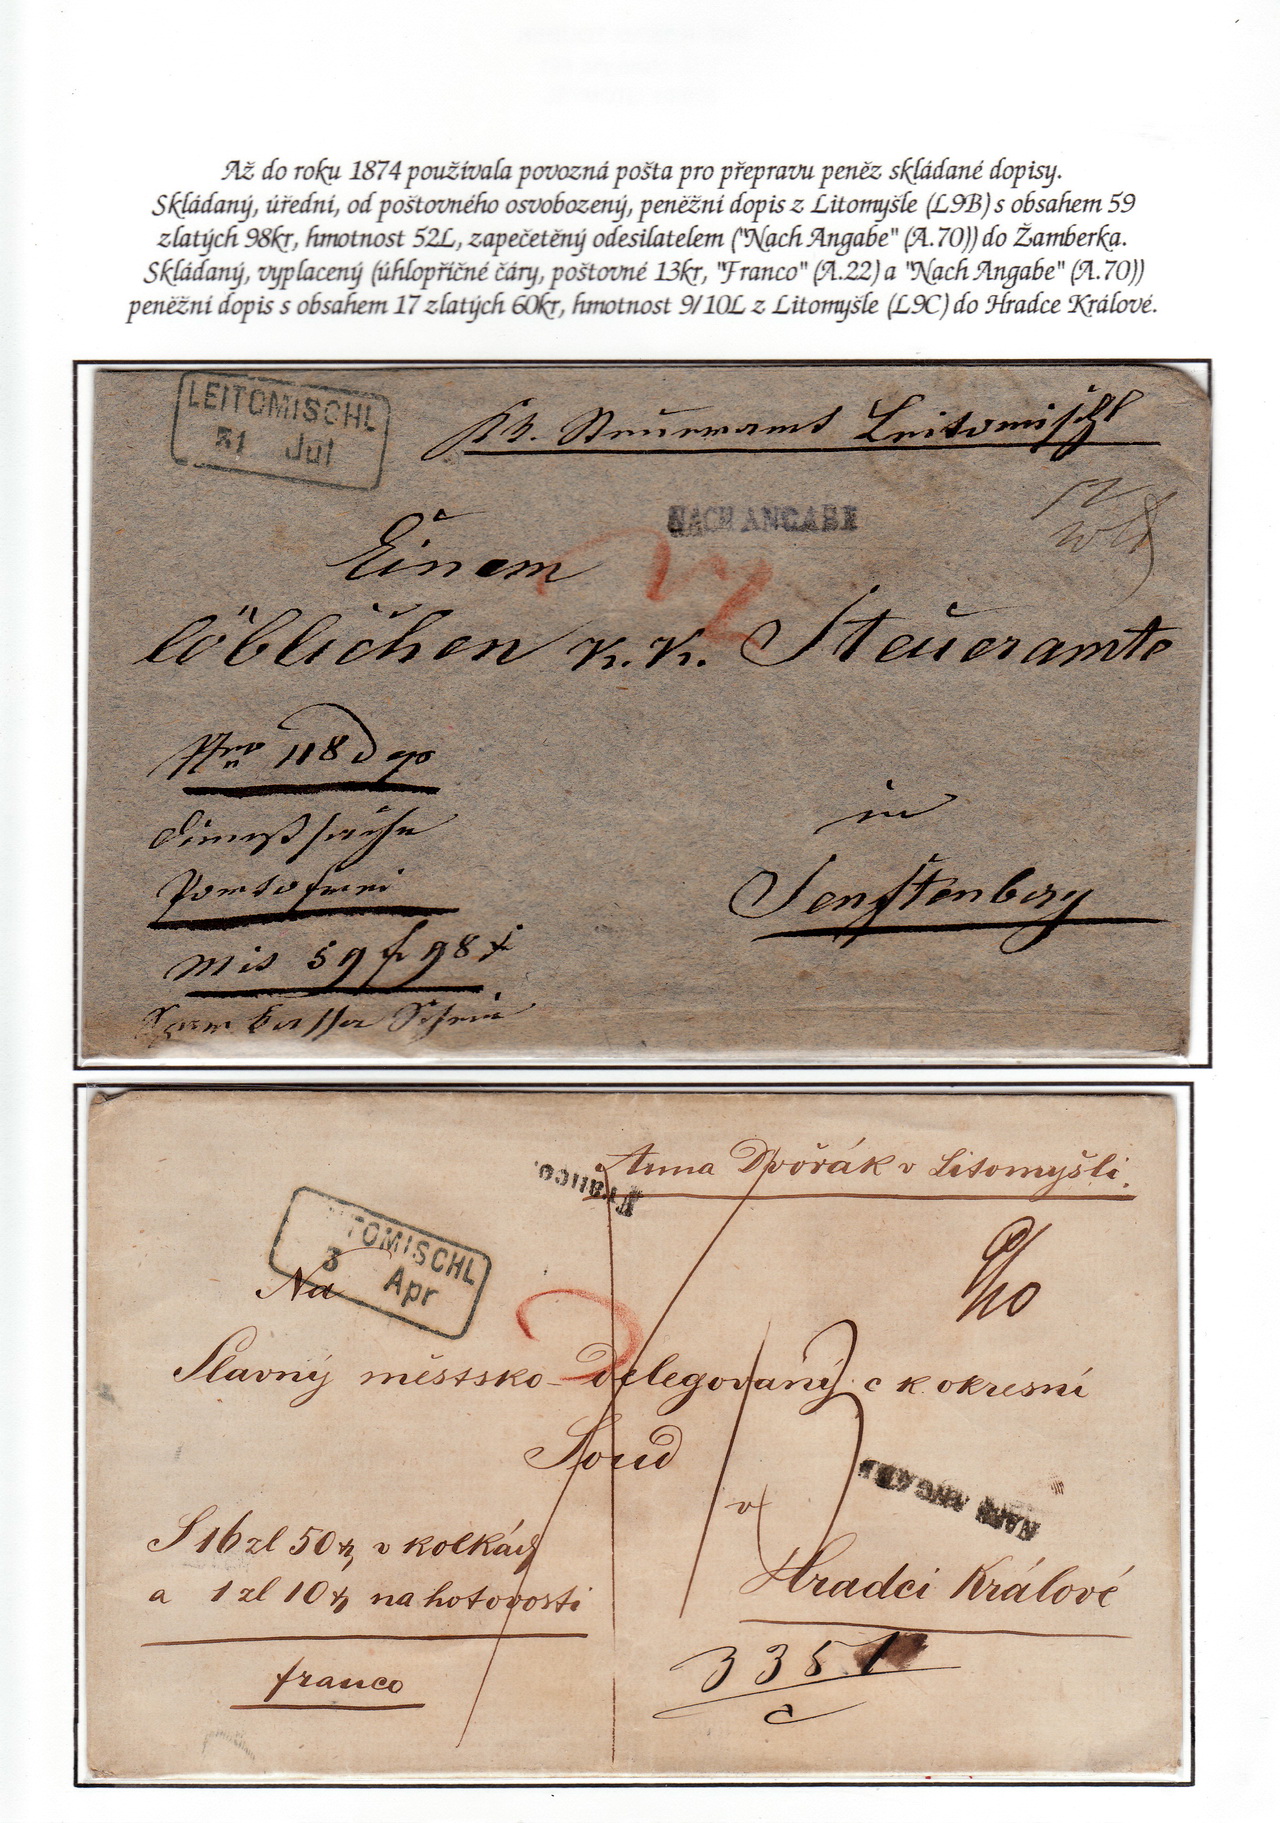 Až do roku 1874 používala povozná pošta pro přepravu peněz skládané dopisy.
Skládaný, úřední, od poštovného osvobozený, peněžní dopis z Litomyšle (L9B) s obsahem 59
zlatých 98kr, hmotnost 52L, zapečetěný odesilatelem ("Nach Angabe" (A.70)) do Žamberka.
Skládaný, vyplacený (úhlopříčné čáry, poštovné 13kr, "Franco" (A.22) a "Nach Angabe" (A.70))
peněžní dopis s obsahem 17 zlatých 60kr, hmotnost 9/10L z Litomyšle (L9C) do Hradce Králové.
LEITOMISCHL
31 Jul
Steueramt Leitomischl
NACH ANGABE
Einem
löblichen K.K. Steueramte
Nro 118
in
Dienstsache
Portofrei
Senftenberg
Mit 59 f 98 x
Anna Dvořák v Litomyšli.
Franco.
ITOMISCHL
3 Apr
9/10
Na
Slavný městsko-delegovaný c k okresní
Soud
v
NACH ANGABE
S 16 zl 50 kr v kolkách
a 1 zl 10 kr na hotovosti
Hradci Králové
franco
3351